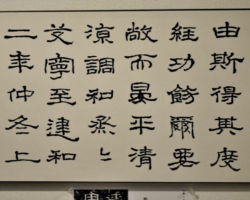 由斯得其度
經功飭爾要
敞而晏平清
涼調和烝〻
艾寧至建和
二年仲冬上